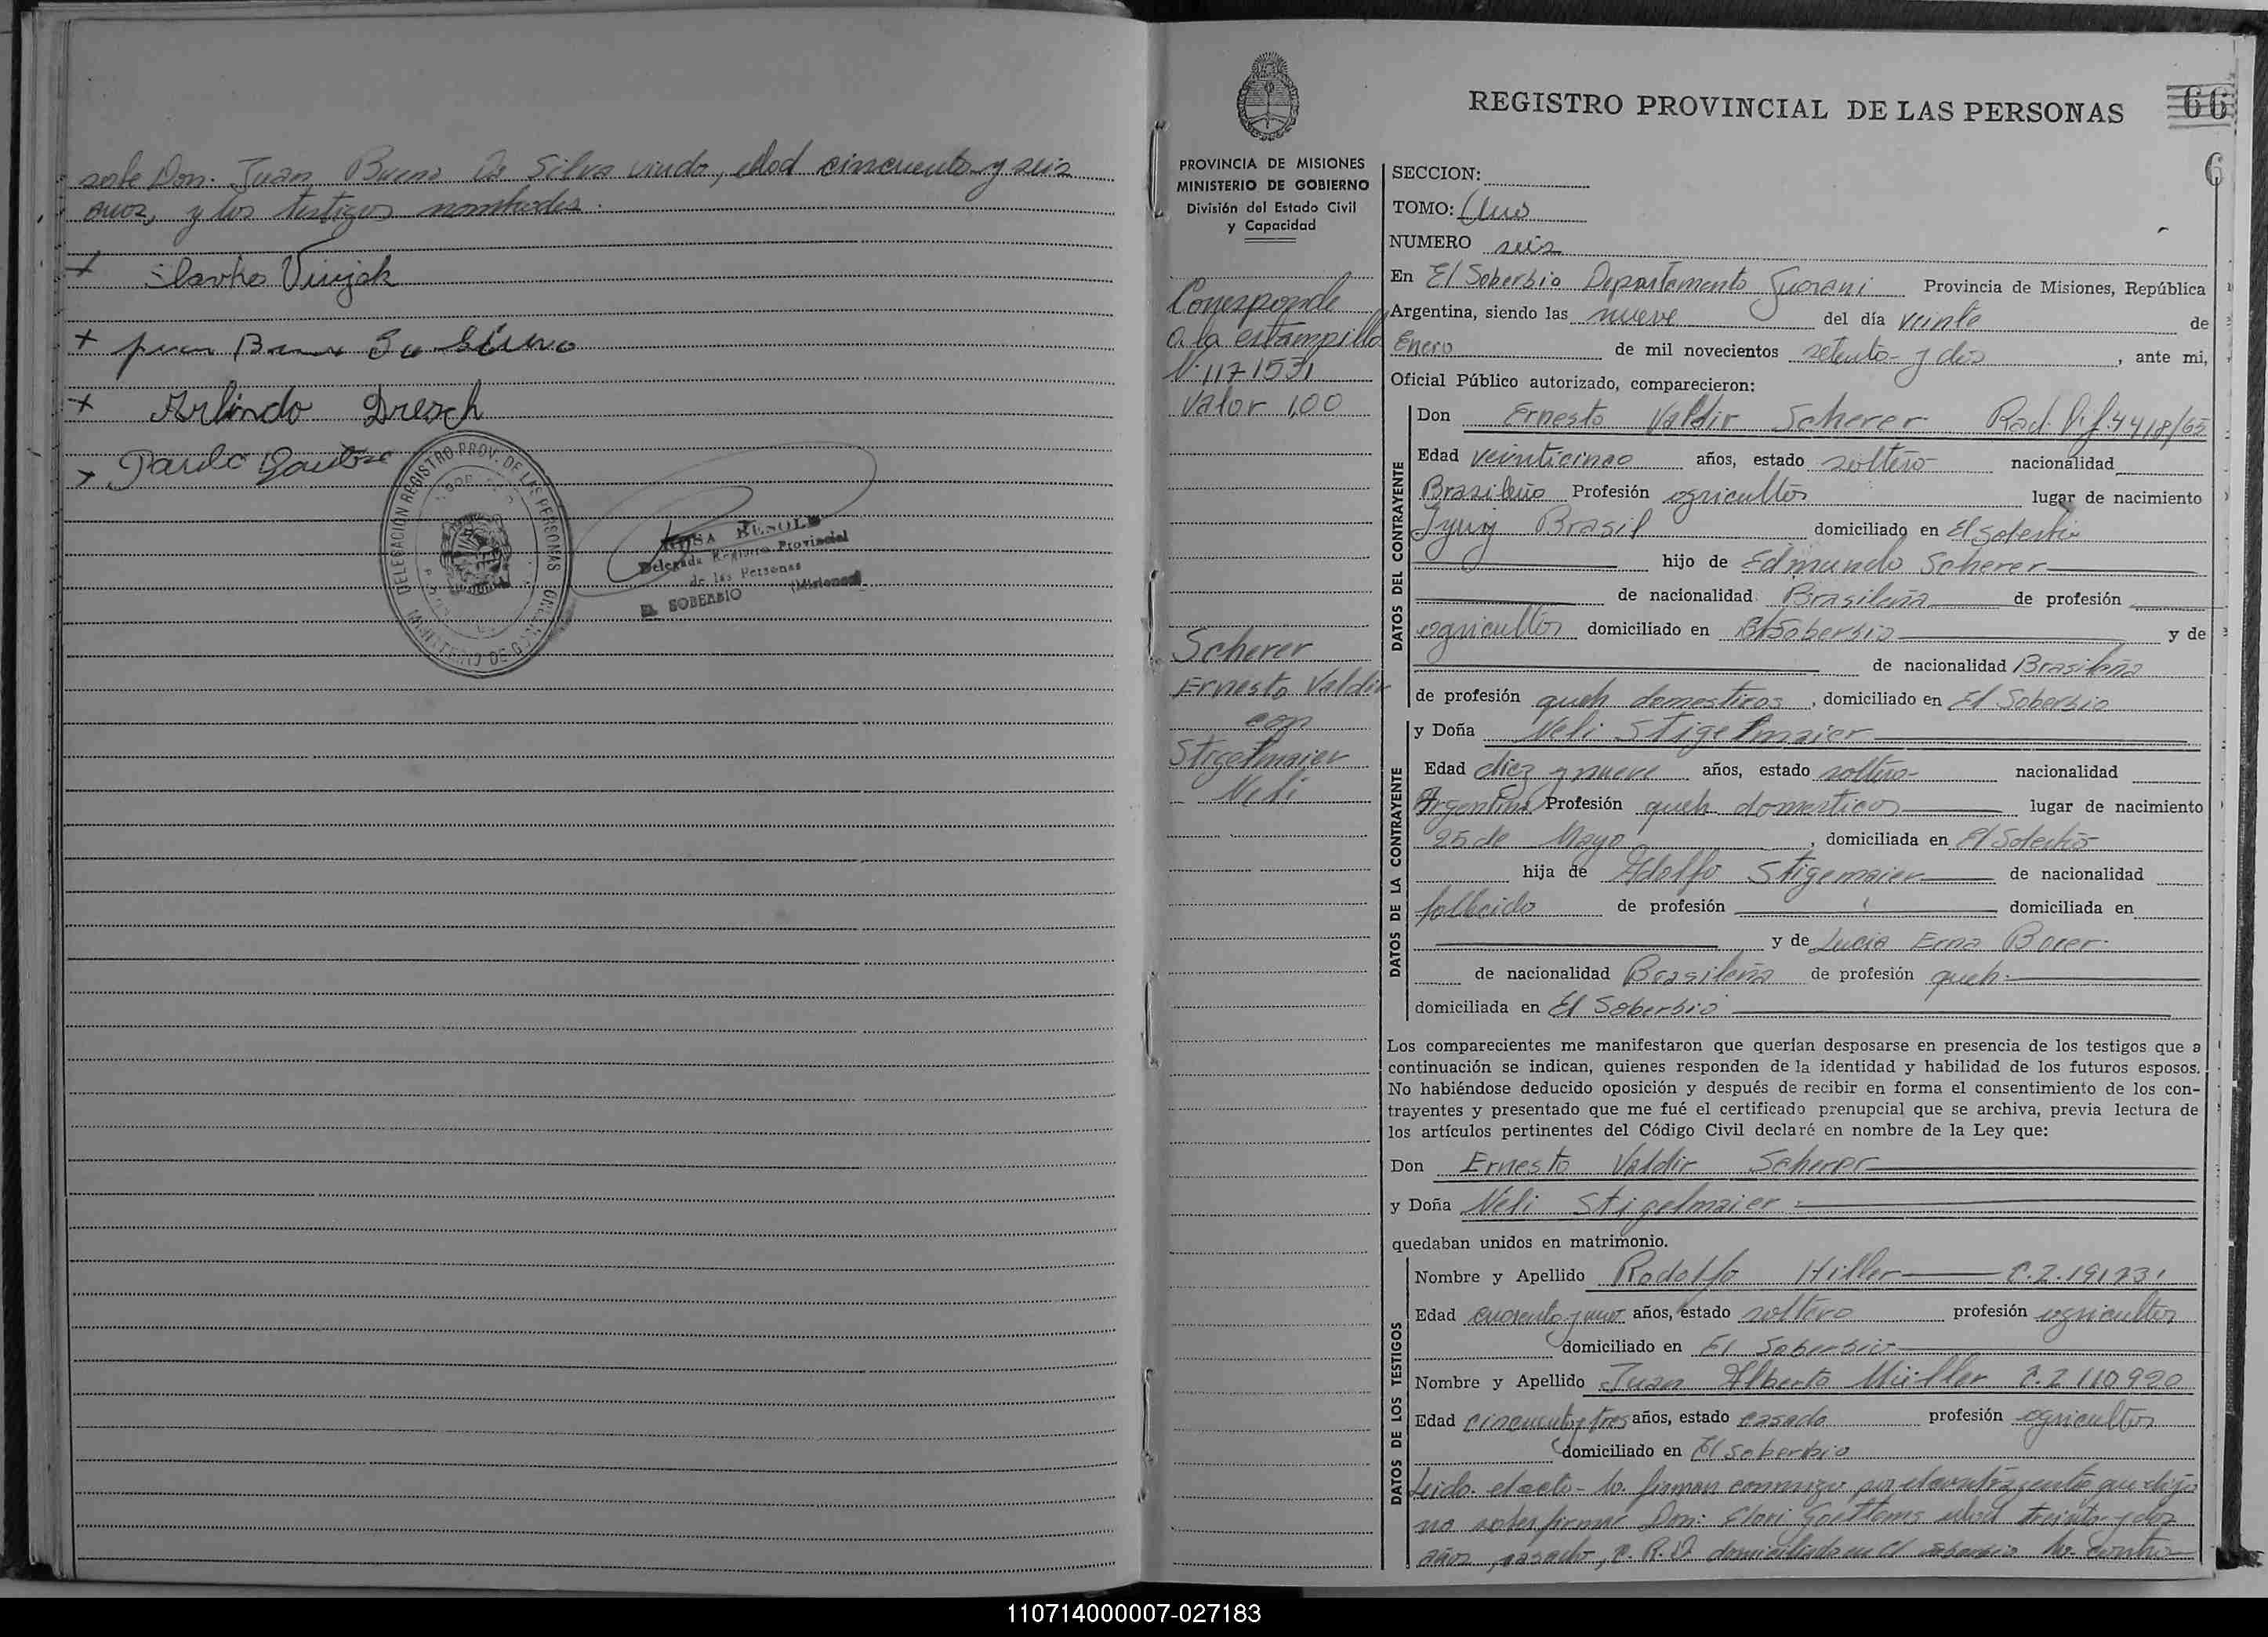 sole Don. Juan Buena Da Silva viudo, edad cincuenta y seis
años, y los testigos nombrados.
+ Slavko Vinjak
+ juan Buena Da Silva
+ Arlindo Dresch
+ Paulo
DELEGACIÓN REGISTRO PROV. DE LAS PERSONAS
MINISTERIO DE GOBIERNO
ROSA
Delegada Registro Provincial
de las Personas
EL SOBERBIO (Misiones)
REGISTRO PROVINCIAL DE LAS PERSONAS
66
6
PROVINCIA DE MISIONES
MINISTERIO DE GOBIERNO
División del Estado Civil
y Capacidad
Corresponde
a la estampilla
N. 1171531
Valor 1,00
Scherer
Ernesto Valdir
con
Stigelmaier
Neli
SECCION:
TOMO: Uno
NUMERO seis
En El Soberbio Departamento Guarani Provincia de Misiones, República
Argentina, siendo las nueve del día veinte de
Enero de mil novecientos setenta y dos, ante mi,
Oficial Público autorizado, comparecieron:
DATOS DEL CONTRAYENTE
Don Ernesto Valdir Scherer Rad. Dif. 4418/65
Edad veinticinco años, estado soltero nacionalidad
Brasileño Profesión agricultor lugar de nacimiento
Iyuy Brasil domiciliado en El Soberbio
hijo de Edmundo Scherer
de nacionalidad Brasileña de profesión
agricultor domiciliado en El Soberbio y de
de nacionalidad Brasileña
de profesión queh domesticos, domiciliado en El Soberbio
DATOS DE LA CONTRAYENTE
y Doña Neli Stigelmaier
Edad diez y nueve años, estado soltera nacionalidad
Argentina Profesión queh domesticos lugar de nacimiento
25 de Mayo, domiciliada en El Soberbio
hija de Adolfo Stigemaier de nacionalidad
fallecido de profesión domiciliada en
y de Lucia Erna Borer
de nacionalidad Brasileña de profesión queh.
domiciliada en El Soberbio
Los comparecientes me manifestaron que querían desposarse en presencia de los testigos que a
continuación se indican, quienes responden de la identidad y habilidad de los futuros esposos.
No habiéndose deducido oposición y después de recibir en forma el consentimiento de los con-
trayentes y presentado que me fué el certificado prenupcial que se archiva, previa lectura de
los artículos pertinentes del Código Civil declaré en nombre de la Ley que:
Don Ernesto Valdir Scherer
y Doña Neli Stigelmaier
quedaban unidos en matrimonio.
DATOS DE LOS TESTIGOS
Nombre y Apellido Rodolfo Hiller C.I. 191231
Edad cuarenta y uno años, estado soltero profesión agricultor
domiciliado en El Soberbio
Nombre y Apellido Juan Alberto Müller C.I 110920
Edad cincuenta y tres años, estado casado profesión agricultor
domiciliado en El Soberbio
Leido el acto lo firman conmigo por el contrayente que dijo
no saber firmar Don: Elori Goettems edad treinta y dos
años, casado, C.R.D domiciliado en El Soberbio la contra
110714000007-027183